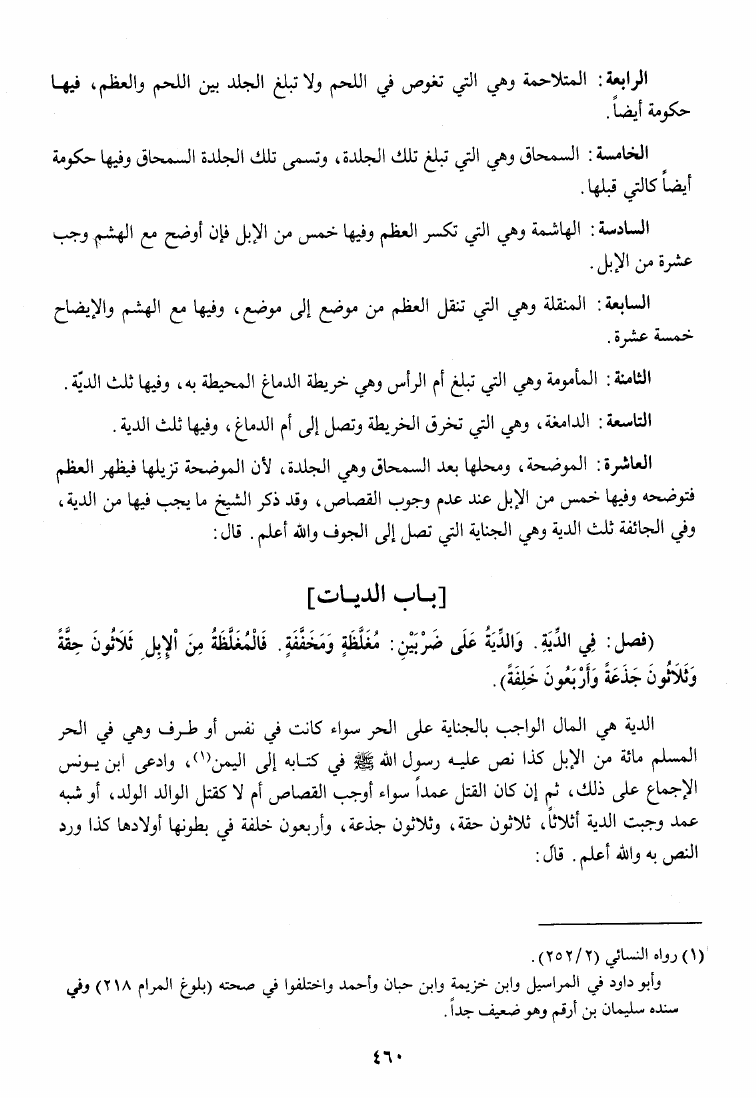 الرابعة: المتلاحمة وهي التي تغوص في اللحم ولا تبلغ الجلد بين اللحم والعظم، فيها
حكومة أيضاً.
الخامسة: السمحاق وهي التي تبلغ تلك الجلدة، وتسمى تلك الجلدة السمحاق وفيها حكومة
أيضاً كالتي قبلها.
السادسة: الهاشمة وهي التي تكسر العظم وفيها خمس من الإبل فإن أوضح مع الهشم وجب
عشرة من الإبل.
السابعة: المنقلة وهي التي تنقل العظم من موضع إلى موضع، وفيها مع الهشم والإيضاح
خمسة عشرة.
الثامنة: المأمومة وهي التي تبلغ أم الرأس وهي خريطة الدماغ المحيطة به، وفيها ثلث الديّة.
التاسعة: الدامغة، وهي التي تخرق الخريطة وتصل إلى أم الدماغ، وفيها ثلث الدية.
العاشرة: الموضحة، ومحلها بعد السمحاق وهي الجلدة، لأن الموضحة تزيلها فيظهر العظم
فتوضحه وفيها خمس من الإبل عند عدم وجوب القصاص، وقد ذكر الشيخ ما يجب فيها من الدية،
وفي الجائفة ثلث الدية وهي الجناية التي تصل إلى الجوف والله أعلم. قال:
[باب الديات]
(فصل: فِي الدِّيَةِ. وَالدِّيَةُ عَلَى ضَرْبَيْنِ: مُغَلَّظَةٍ وَمَخَفَّفَةٍ. فَالْمُغَلَّظَةُ مِنَ اْلإِبِلِ ثَلاَثُونَ حِقَّةً
وَثَلاَثُونَ جَذَعَةً وَأَرْبَعُونَ خَلِفَةً).
الدية هي المال الواجب بالجناية على الحر سواء كانت في نفس أو طرف وهي في الحر
المسلم مائة من الإبل كذا نص عليه رسول الله ﷺ في كتابه إلى اليمن(١)، وادعى ابن يونس
الإجماع على ذلك، ثم إن كان القتل عمداً سواء أوجب القصاص أم لا كقتل الوالد الولد، أو شبه
عمد وجبت الدية أثلاثاً، ثلاثون حقة، وثلاثون جذعة، وأربعون خلفة في بطونها أولادها كذا ورد
النص به والله أعلم. قال:
(١) رواه النسائي (٢/ ٢٥٢).
وأبو داود في المراسيل وابن خزيمة وابن حبان وأحمد واختلفوا في صحته (بلوغ المرام ٢١٨) وفي
سنده سليمان بن أرقم وهو ضعيف جداً.
٤٦٠